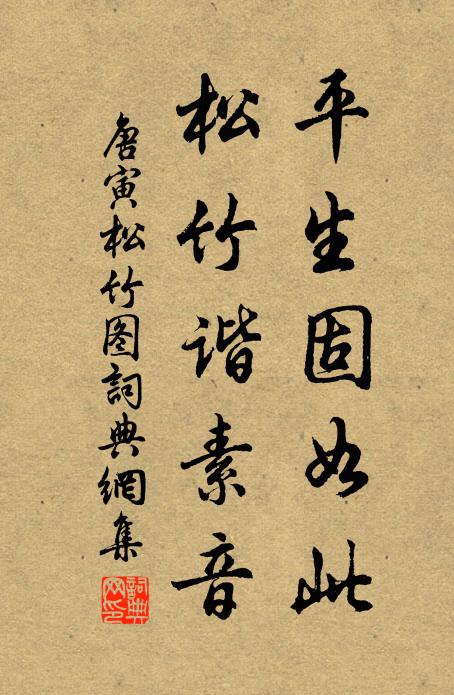 平生固如此
松竹谐素音
唐寅松竹图詞典網集
詞典网印